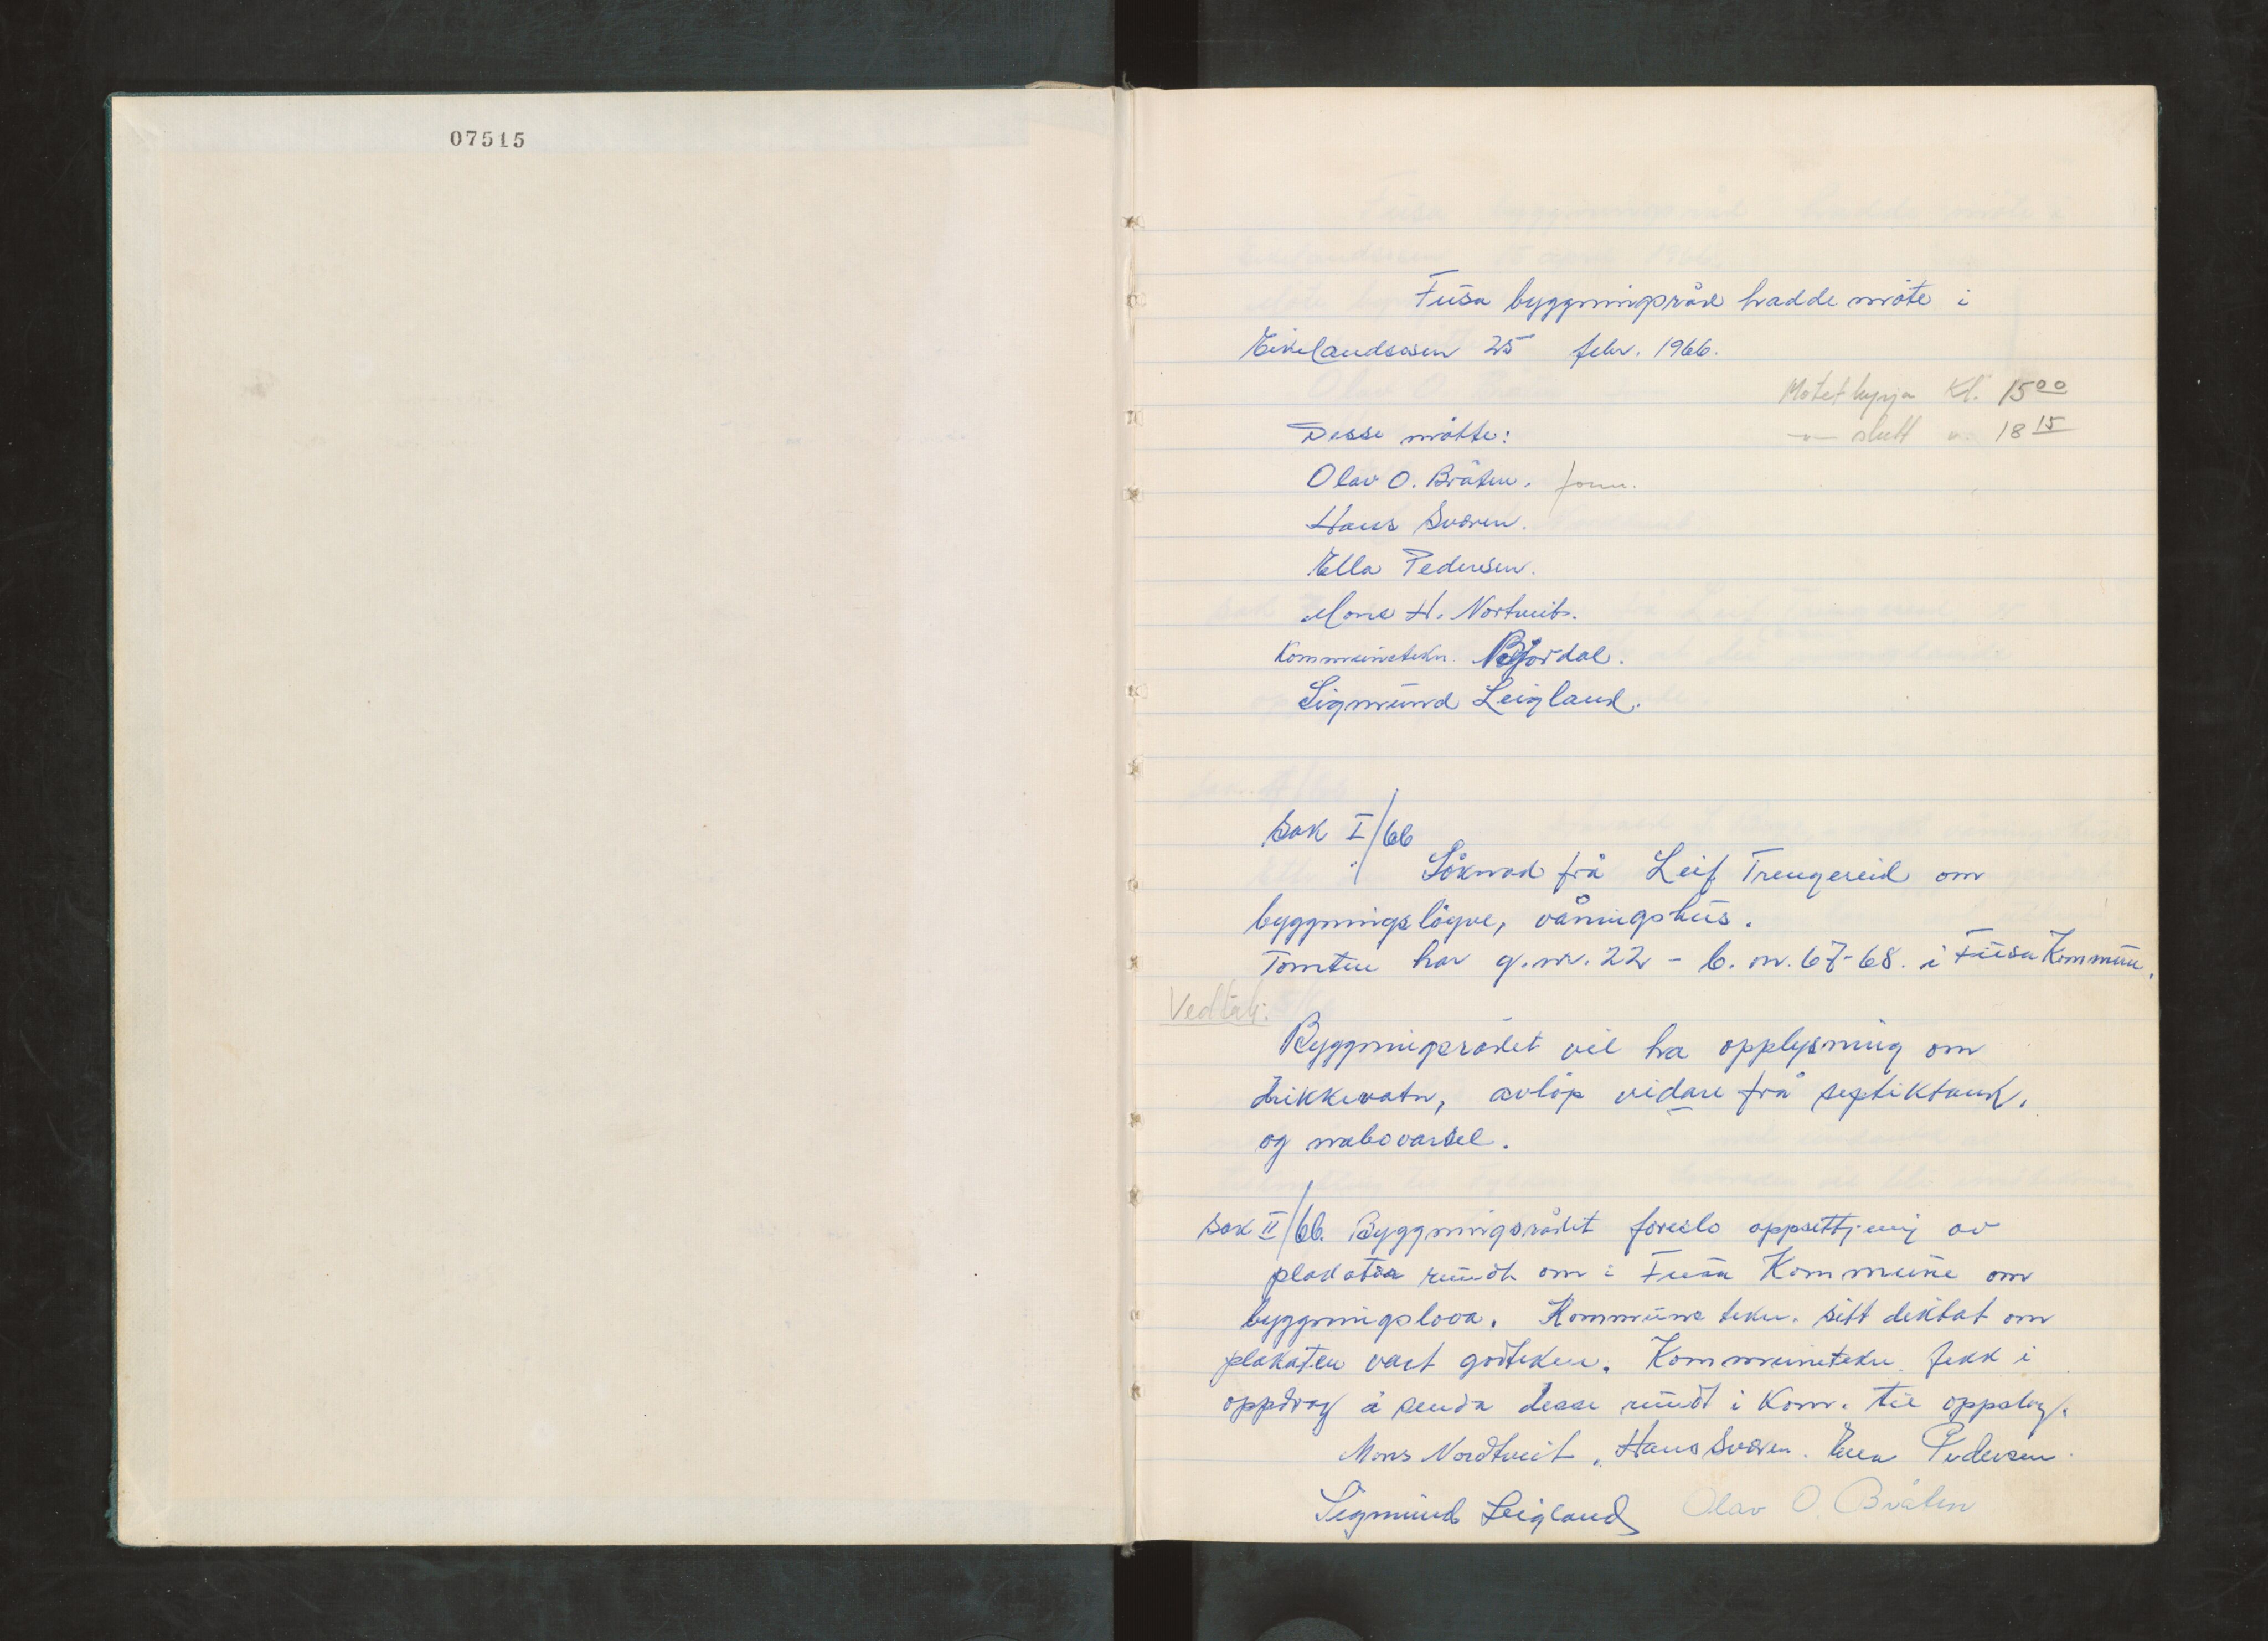 07515
Fusa byggningsråd hadde møte i
Eikelandsosen 25 febr. 1966.
Møtet byrja Kl. 15 00
-"- slutt " 18 15
Desse møtte:
Olav O. Bråten. form.
Hans Sværen.
Ella Pedersen.
Mons H. Nortveit.
Kommunetekn. Bjordal.
Sigmund Leigland.
Sak I/66
Søknad frå Leif Trengereid om
byggningsløyve, våningshus.
Tomten har g.nr. 22 - b.nr. 67-68. i Fusa Kommune.
Vedtak:
Byggningsrådet vil ha opplysning om
drikkevatn, avløp vidare frå septiktank,
og nabovarsel.
Sak II/66. Byggningsrådet foreslo oppsettjing av
plakater rundt om i Fusa Kommune om
byggningslova. Kommune tekn. sitt diktat om
plakaten vart godteken. Kommunetekn. fekk i
oppdrag å senda desse rundt i Kom. til oppslag.
Mons Nordtveit, Hans Sværen. Ella Pedersen.
Sigmund Leigland Olav O. Bråten